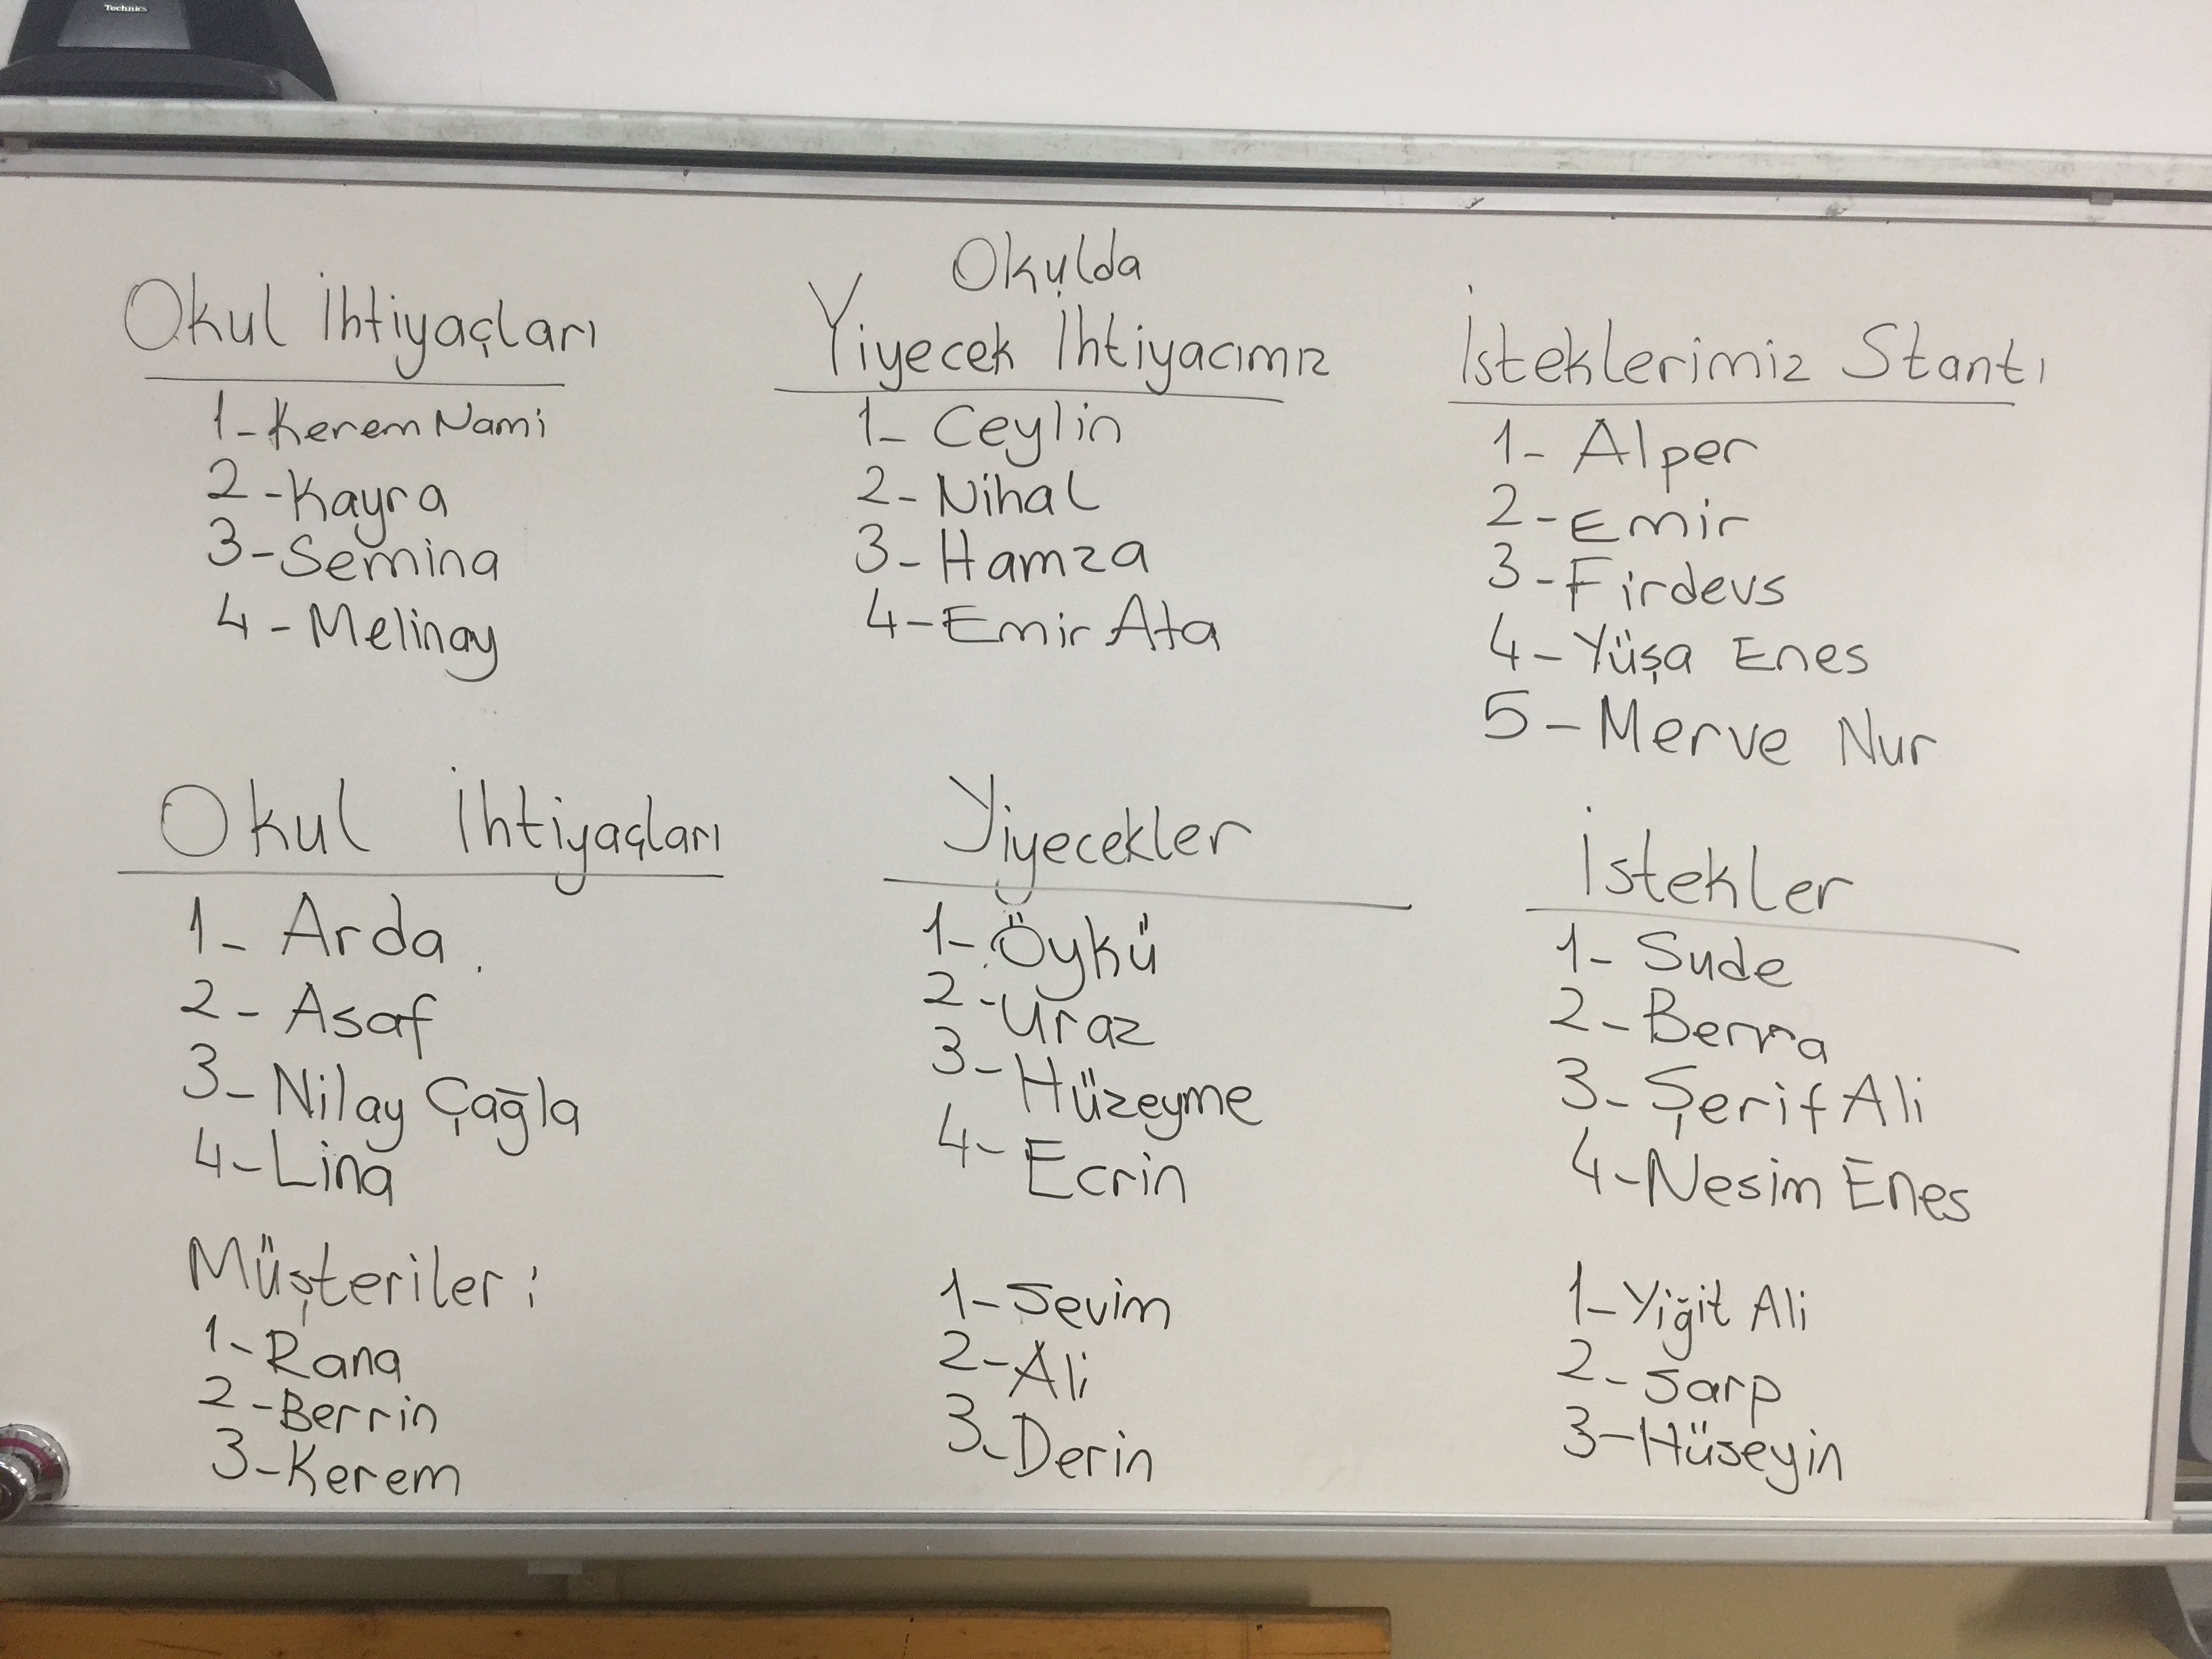 Technics
Okul İhtiyaçları
1-Kerem Nami
2-Kayra
3-Semina
4-Melinay
Okulda
Yiyecek İhtiyacımız
1-Ceylin
2-Nihal
3-Hamza
4-Emir Ata
İsteklerimiz Stantı
1-Alper
2-Emir
3-Firdevs
4-Yüşa Enes
5-Merve Nur
Okul İhtiyaçları
1-Arda
2-Asaf
3-Nilay Çağla
4-Lina
Yiyecekler
1-Öykü
2-Uraz
3-Hüzeyme
4-Ecrin
İstekler
1-Sude
2-Berra
3-Şerif Ali
4-Nesim Enes
Müşteriler:
1-Rana
2-Berrin
3-Kerem
1-Sevim
2-Ali
3-Derin
1-Yiğit Ali
2-Sarp
3-Hüseyin